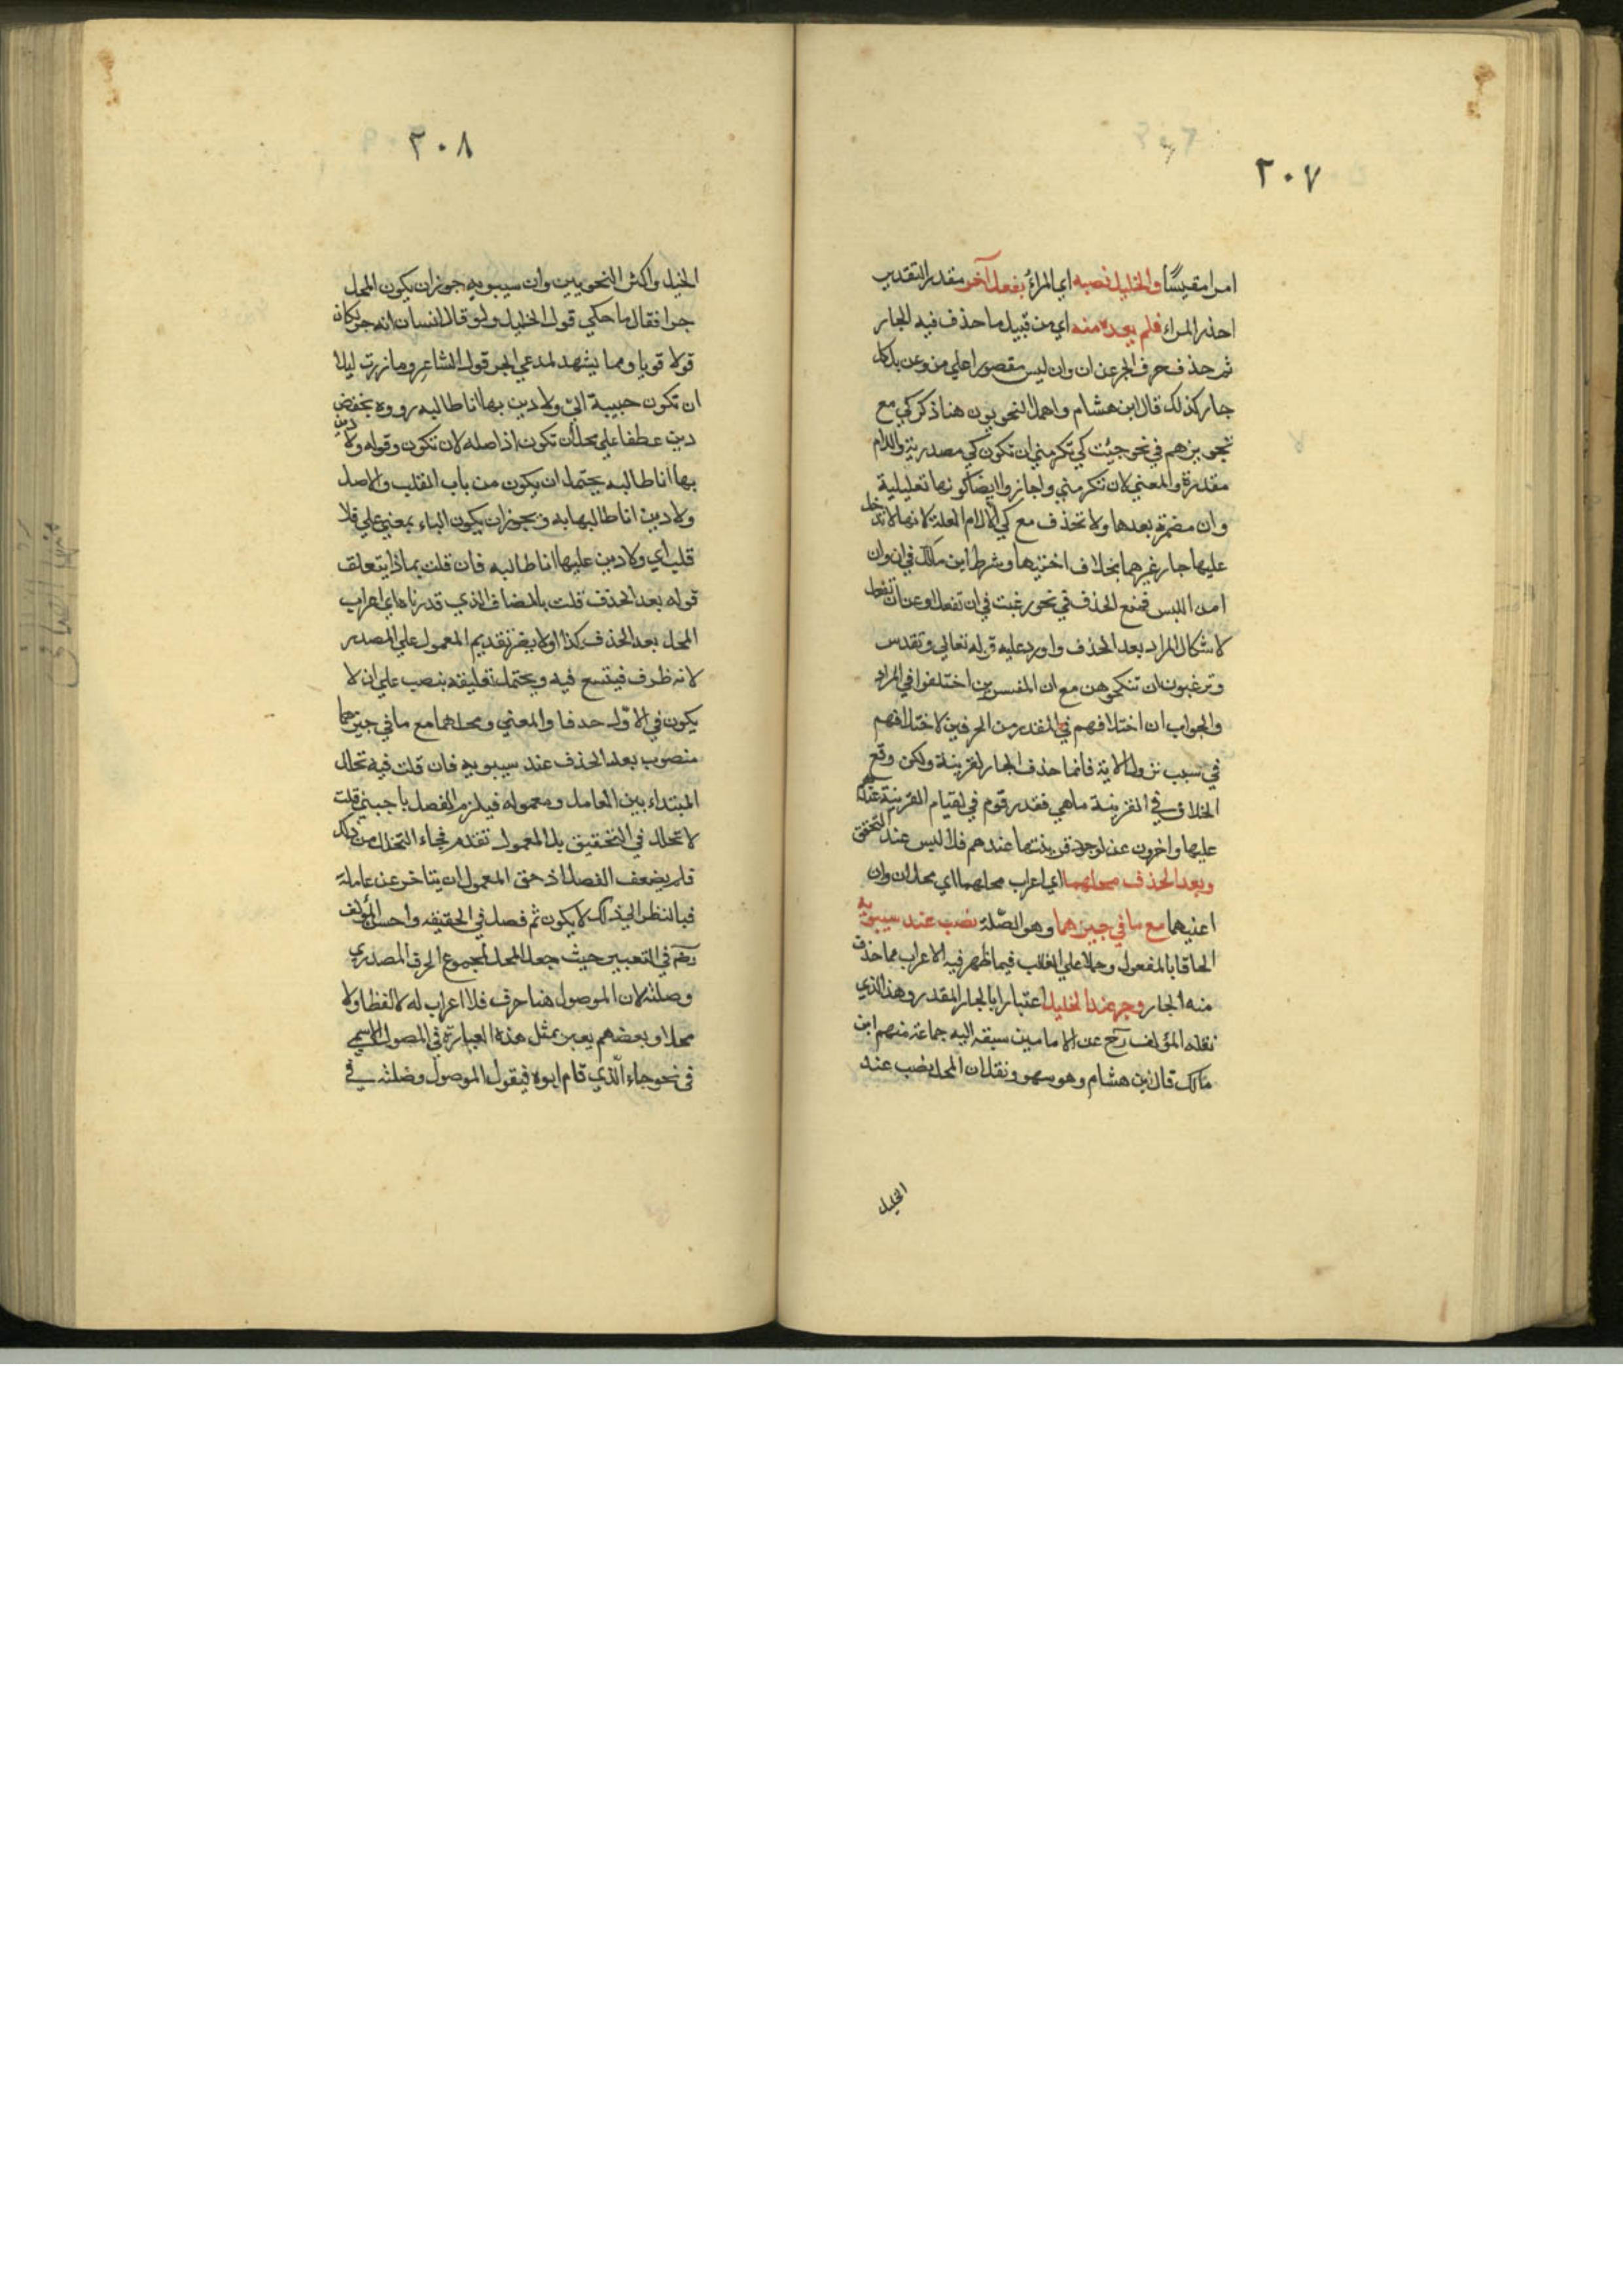 ٢٠٧
امرا مقيسًا والخليل نصبه اي المراءَ بفعل آخر مقدر التقدير
احذر المراء فلم يعده منه اي من قبيل ما حذف فيه الجار
ثم حذف حرف الجر عن ان وان ليس مقصورا علي من وعن بل كل
جار كذلك قال ابن هشام واهمل النحويون هنا ذكر كي مع
تجويزهم في نحو جيئت كي تكرمني ان تكون كي مصدرية واللام
مقدرة والمعني لان تكرمني واجازوا ايضا كونها تعليلية
وان مضمرة بعدها ولا تحذف مع كي الا لام العلة لانها لا تدخل
عليها جار غيرهما بخلاف اختيها وشرط ابن مالك في ان وان
امن اللبس فمنع الحذف في نحو رغبت في ان تفعل او عن ان تفعل
لاشكال المراد بعد الحذف واورد عليه قوله تعالي وتقدس
وترغبون ان تنكحوهن مع ان المفسرين اختلفوا في المراد
والجواب ان اختلافهم في المقدر من الحرفين لاختلافهم
في سبب نزول الاية فانما حذف الجار لقرينة ولكن وقع
الخلاف في القرينة ما هي فقدر قوم في لقيام القرينة عندهم
عليها واخرون عن لوجود قرينتها عندهم فلا لبس عند التحقق
وبعد الحذف محلهما اي اعراب محلهما اي محل ان وان
اعنيهما مع ما في حيزهما وهو الصّلة نصب عند سيبويه
الحاقا بالمفعول وحملا علي الغالب فيما ظهر فيه الاعراب مما حذف
منه الجار وجر عند الخليل اعتبارا بالجار المقدر وهذا الذي
نقله المؤلف رح عن الامامين سبقه اليه جماعة منهم ابن
مالك قال ابن هشام وهو سهو ونقل ان المحل نصب عند
الخليل
٢٠٨
الخليل واكثر النحويين وان سيبويه جوز ان يكون المحل
جرا فقال ما حكي قول الخليل ولو قال انسان انه جر لكان
قولا قويا ومما يشهد لمدعي الجر قول الشاعر وما زرت ليلا
ان تكون حبيبة اليّ ولا دين بها انا طالبه رووه بخفض
دين عطفا علي محل أن تكون اذ اصله لان تكون وقوله ولا دين
بها انا طالبه يحتمل ان يكون من باب القلب والاصل
ولا دين انا طالبها به ويجوز ان يكون الباء بمعني علي فلا
قلب اي ولا دين عليها انا طالبه فان قلت بماذا يتعلق
قوله بعد الحذف قلت بالمضاف الذي قدرناه اي اعراب
المحل بعد الحذف كذا اولا يضر تقديم المعمول علي المصدر
لانه ظرف فيتسع فيه ويحتمل تعليقه بنصب علي ان لا
يكون في الاوّل حدفا والمعني ومحلهما مع ما في حيزهما
منصوب بعد الحذف عند سيبويه فان قلت فيه تخلل
المبتداء بين العامل ومعموله فيلزم الفصل باجنبي قلت
لا تخلل في التحقيق بل المعمول تقدم فجاء التخلل من ذلك
فلم يضعف الفصل اذ حق المعمول ان يتاخر عن عامله
فبالنظر الي ذلك لا يكون ثم فصل في الحقيقه واحسن المؤلف
رحم في التعبير حيث جعل المحل لمجموع الحرف المصدري
وصلته لان الموصول هنا حرف فلا اعراب له لا لفظا ولا
محلا وبعضهم يعبر بمثل هذه العبارة في المصول الاسمي
في نحو جاء الّذي قام ابوه فيقول الموصول وصلته في